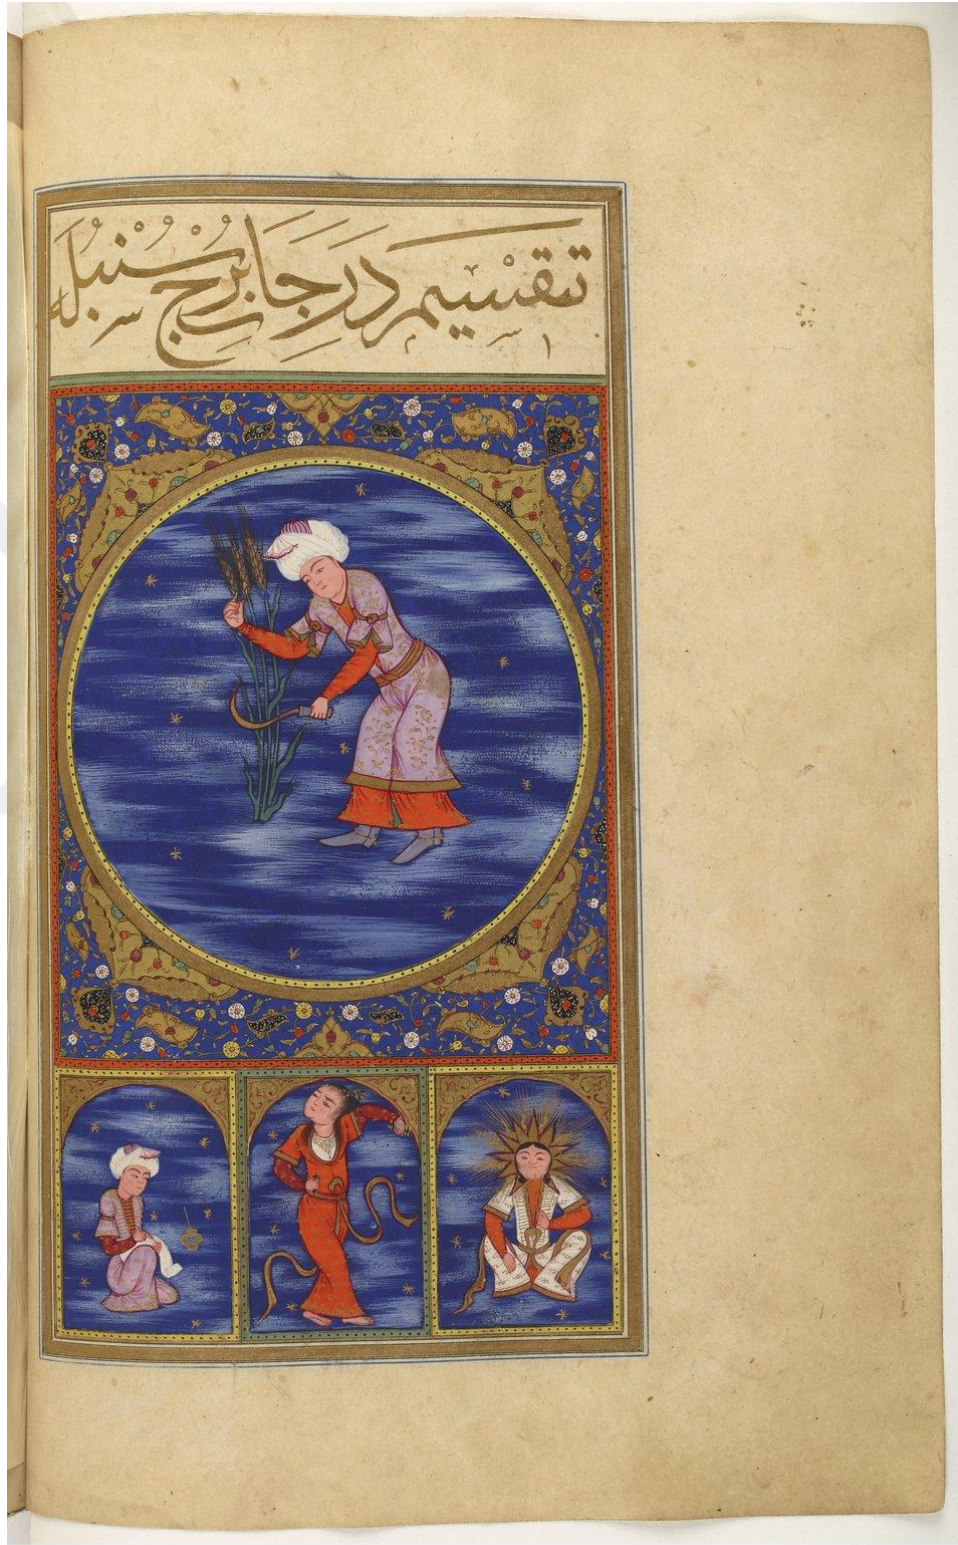 تقسيم درجا برج سنبله